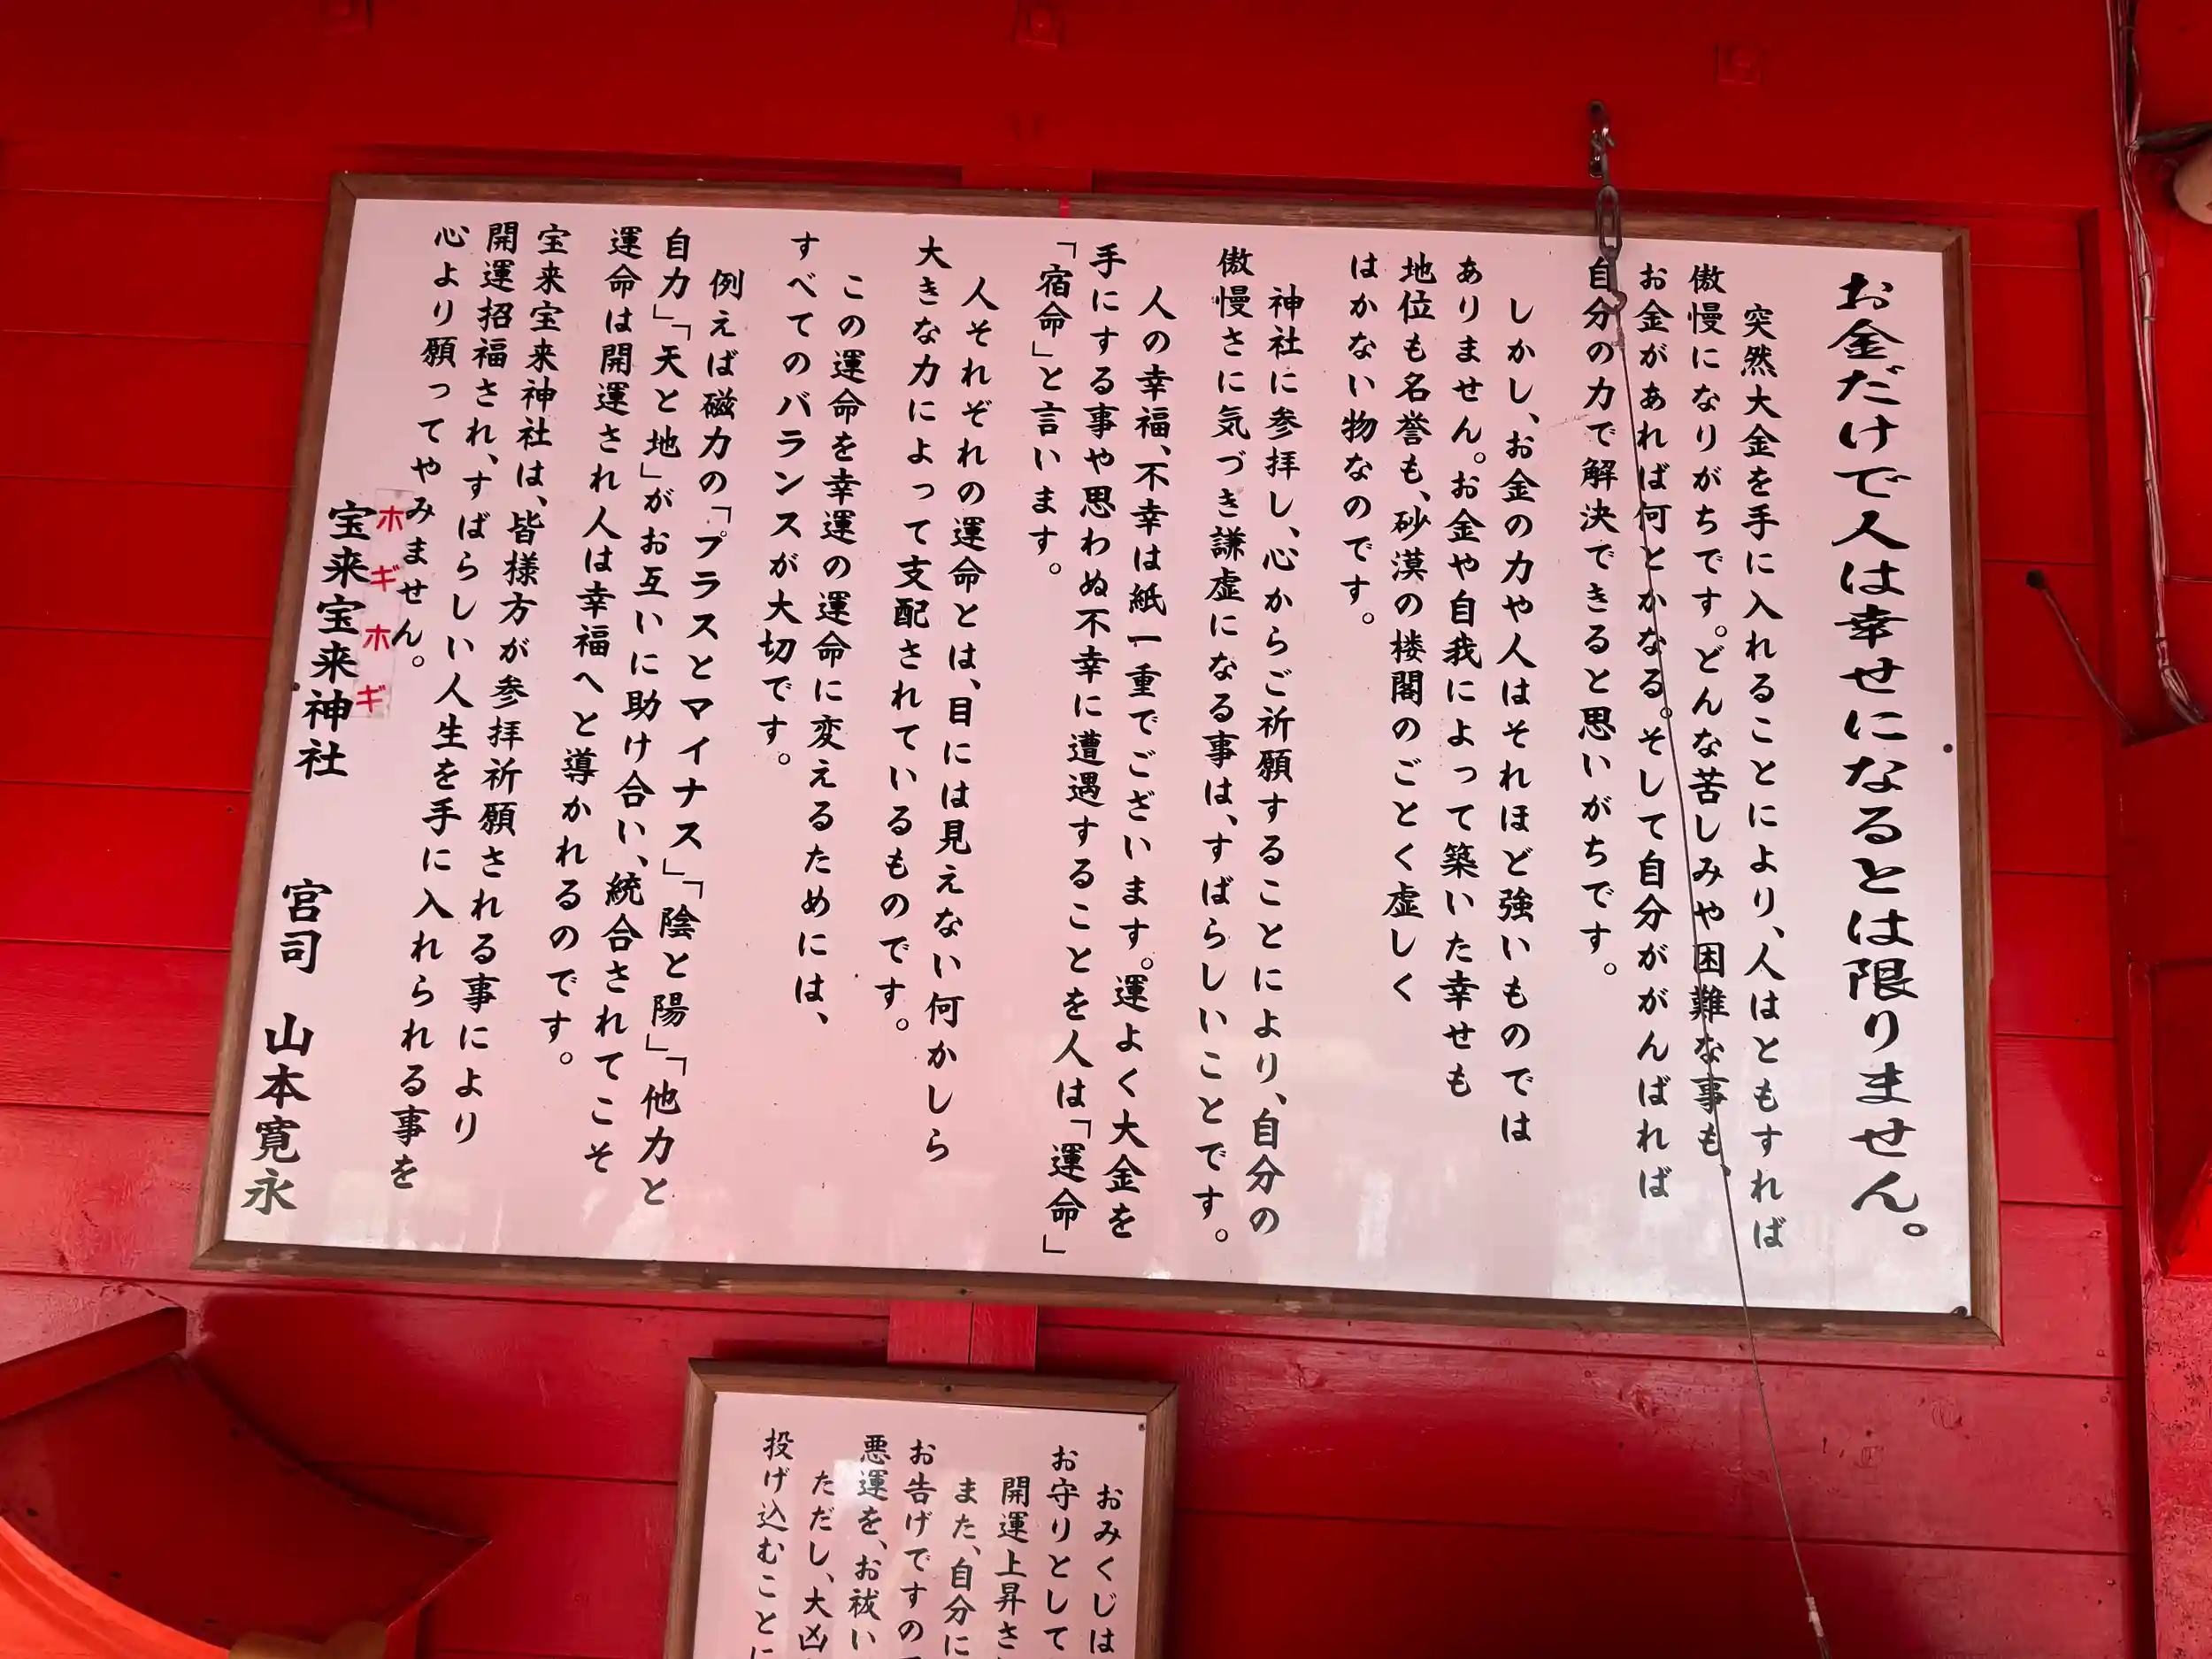 お金だけで人は幸せになるとは限りません。
突然大金を手に入れることにより、人はともすれば
傲慢になりがちです。どんな苦しみや困難な事も、
お金があれば何とかなる。そして自分ががんばれば
自分の力で解決できると思いがちです。
しかし、お金の力や人はそれほど強いものでは
ありません。お金や自我によって築いた幸せも
地位も名誉も、砂漠の楼閣のごとく虚しく
はかない物なのです。
神社に参拝し、心からご祈願することにより、自分の
傲慢さに気づき謙虚になる事は、すばらしいことです。
人の幸福、不幸は紙一重でございます。運よく大金を
手にする事や思わぬ不幸に遭遇することを人は「運命」
「宿命」と言います。
人それぞれの運命とは、目には見えない何かしら
大きな力によって支配されているものです。
この運命を幸運の運命に変えるためには、
すべてのバランスが大切です。
例えば磁力の「プラスとマイナス」「陰と陽」「他力と
自力」「天と地」がお互いに助け合い、統合されてこそ
運命は開運され人は幸福へと導かれるのです。
宝来宝来神社は、皆様方が参拝祈願される事により
開運招福され、すばらしい人生を手に入れられる事を
心より願ってやみません。
ホギホギ
宝来宝来神社 宮司 山本寛永
おみくじは
お守りとして
開運上昇さ
また、自分に
お告げですの
悪運を、お祓い
ただし、大凶
投げ込むことに